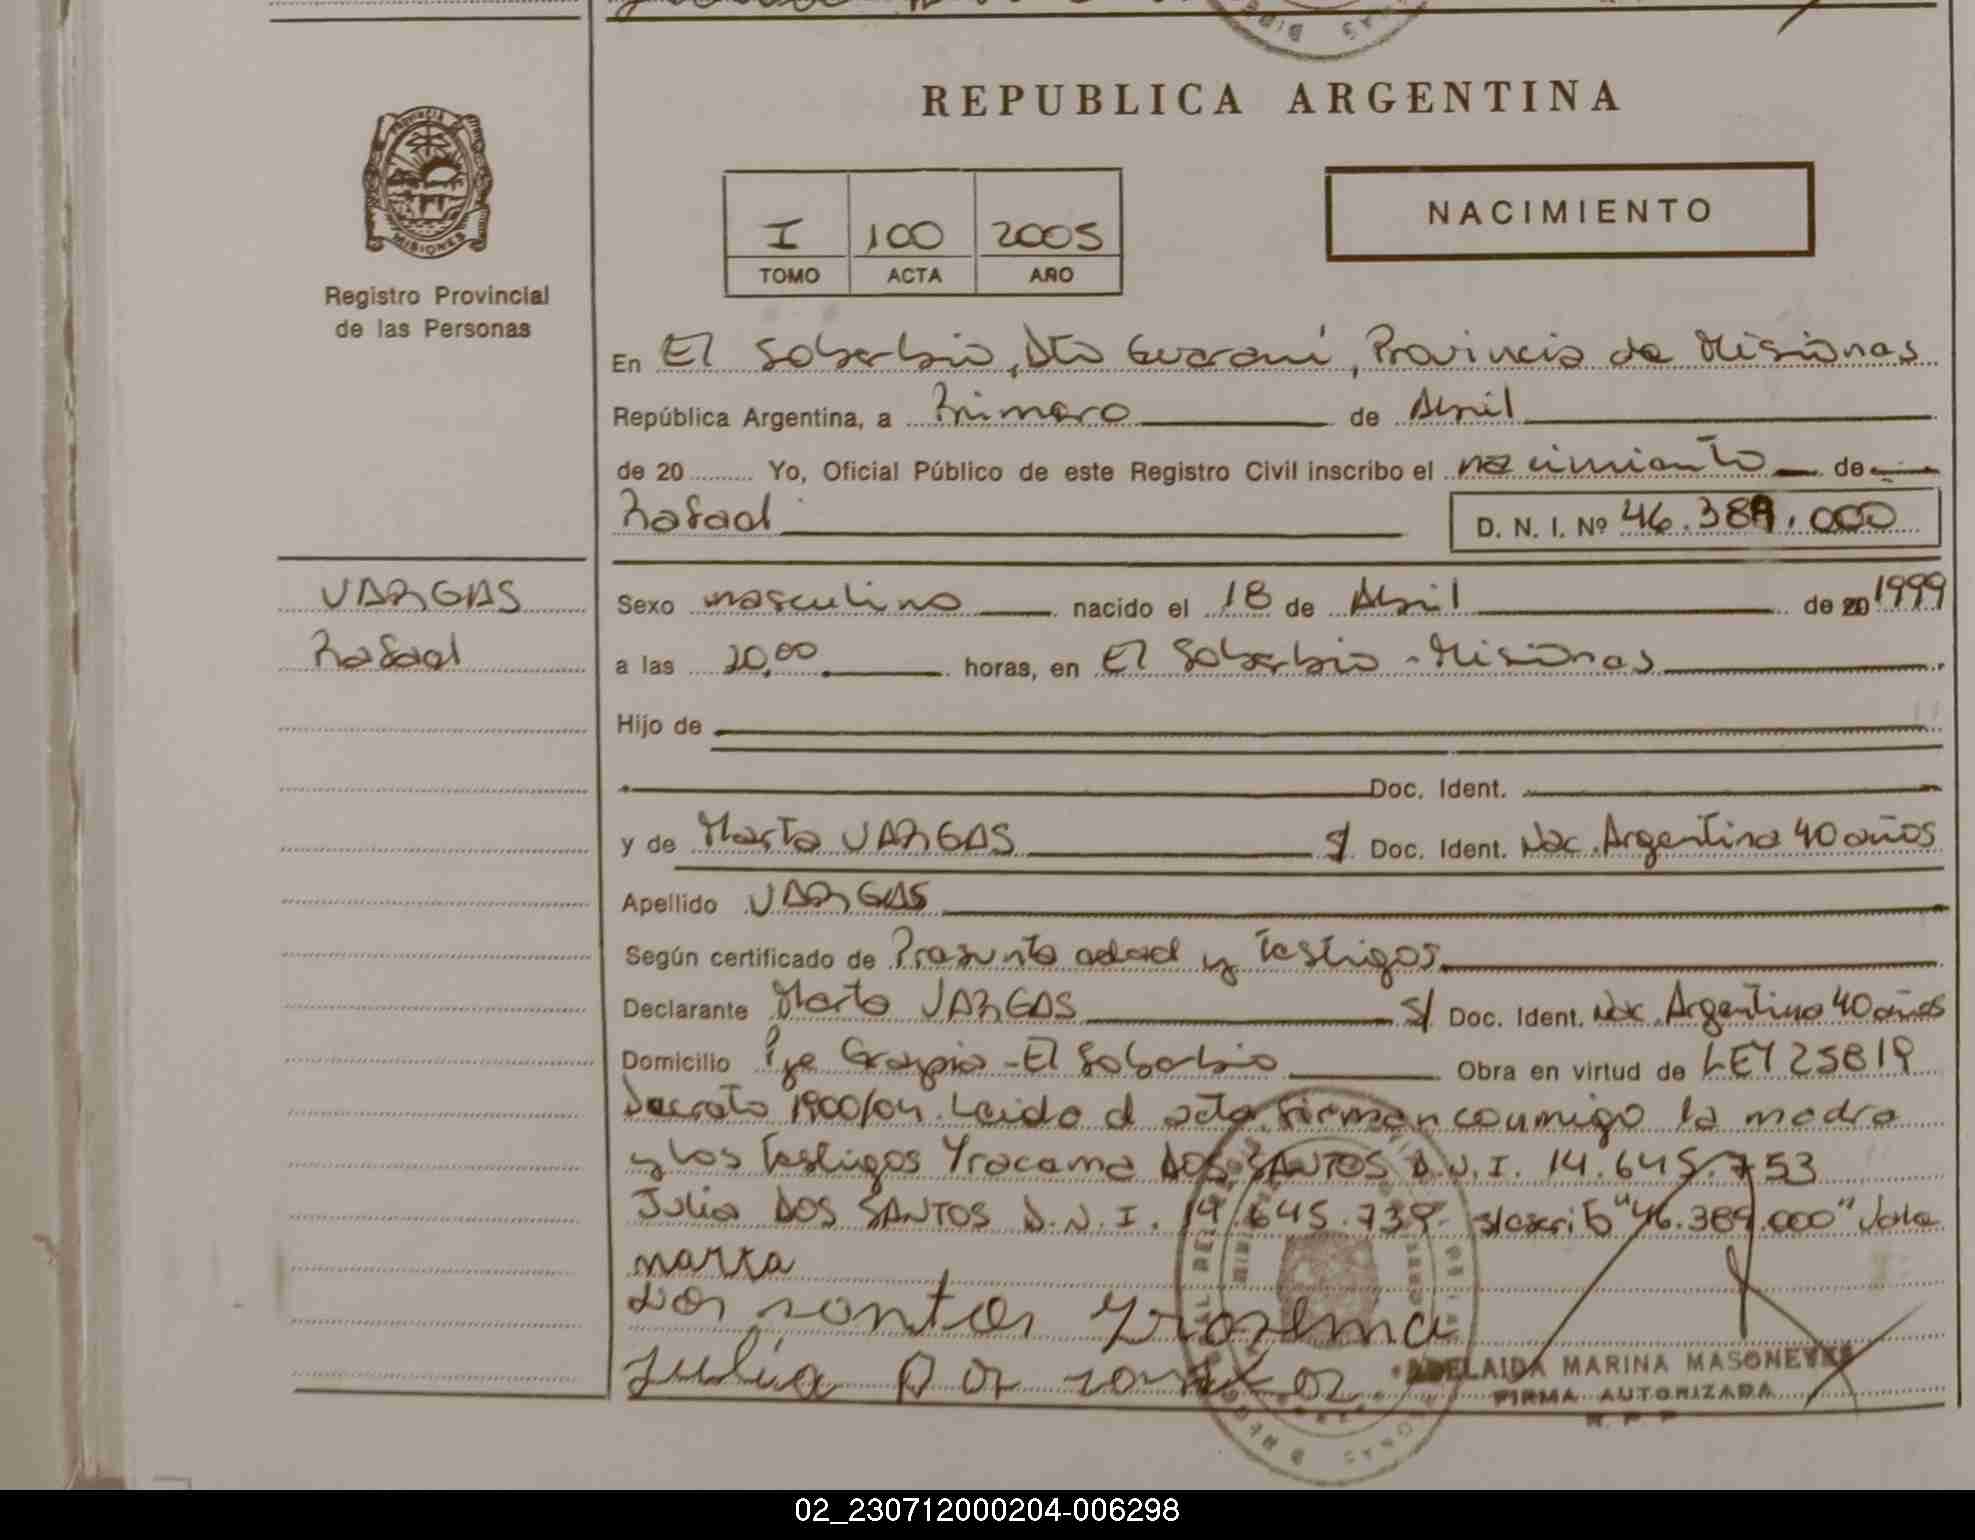 REPUBLICA ARGENTINA
PROVINCIA
MISIONES
Registro Provincial
de las Personas
I 100 2005
TOMO ACTA AÑO
NACIMIENTO
En El Soberbio, Dto Guaraní, Provincia de Misiones
República Argentina, a Primero de Abril
de 20 Yo, Oficial Público de este Registro Civil inscribo el nacimiento de
Rafael D. N. I. Nº 46.389.000
VARGAS
Rafael
Sexo masculino nacido el 18 de Abril de 20 1999
a las 20,00 horas, en El Soberbio - Misiones
Hijo de
Doc. Ident.
y de Marta VARGAS S/ Doc. Ident. Nac. Argentina 40 años
Apellido VARGAS
Según certificado de Presunta edad y testigos
Declarante Marta VARGAS S/ Doc. Ident. Nac. Argentina 40 años
Domicilio Pje - El Soberbio Obra en virtud de LEY 25819
Decreto 1900/04. Leido el acta firman conmigo la madre
y los testigos Yracema DOS SANTOS D.N.I. 14.645.753
Julia DOS SANTOS D.N.I. 14.645.739- "46.389.000" Vale
marta
Dos santos
Julia Dos santos
ADELAIDA MARINA
FIRMA AUTORIZADA
R. P. P.
02_230712000204-006298